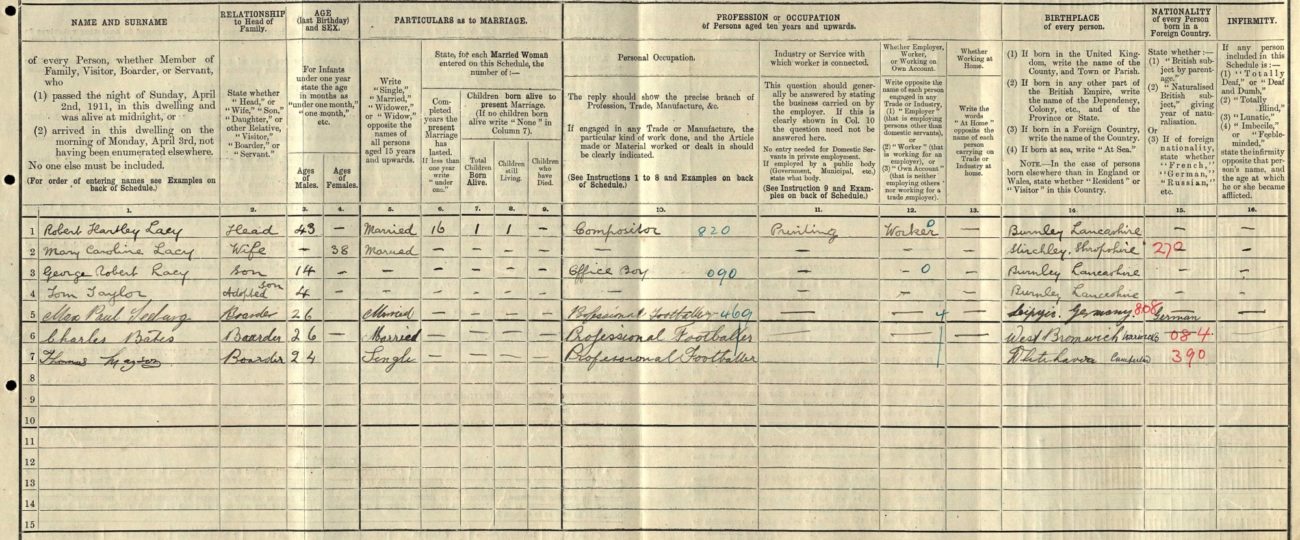 NAME AND SURNAME
of every Person, whether Member of
Family, Visitor, Boarder, or Servant,
who
(1) passed the night of Sunday, April
2nd, 1911, in this dwelling and
was alive at midnight, or
(2) arrived in this dwelling on the
morning of Monday, April 3rd, not
having been enumerated elsewhere.
No one else must be included.
(For order of entering names see Examples on
back of Schedule.)
RELATIONSHIP
to Head of
Family.
State whether
"Head," or
"Wife," "Son,"
"Daughter," or
other Relative,
"Visitor,"
"Boarder," or
"Servant."
AGE
(last Birthday)
and SEX.
For Infants
under one year
state the age
in months as
"under one month,"
"one month,"
etc.
Ages
of
Males.
Ages
of
Females.
PARTICULARS as to MARRIAGE.
Write
"Single,"
"Married,"
"Widower,"
or "Widow,"
opposite the
names of
all persons
aged 15 years
and upwards.
State, for each Married Woman
entered on this Schedule, the
number of:—
Com-
pleted
years the
present
Marriage
has
lasted.
If less than
one year
write
"under
one."
Children born alive to
present Marriage.
(If no children born
alive write "None" in
Column 7).
Total
Children
Born
Alive.
Children
still
Living.
Children
who
have
Died.
PROFESSION or OCCUPATION
of Persons aged ten years and upwards.
Personal Occupation.
The reply should show the precise branch of
Profession, Trade, Manufacture, &c.
If engaged in any Trade or Manufacture, the
particular kind of work done, and the Article
made or Material worked or dealt in should
be clearly indicated.
(See Instructions 1 to 8 and Examples on back
of Schedule.)
Industry or Service with
which worker is connected.
This question should gener-
ally be answered by stating
the business carried on by
the employer. If this is
clearly shown in Col. 10
the question need not be
answered here.
No entry needed for Domestic Ser-
vants in private employment.
If employed by a public body
(Government, Municipal, etc.)
state what body.
(See Instruction 9 and Exam-
ples on back of Schedule.)
Whether Employer,
Worker,
or Working on
Own Account.
Write opposite the
name of each person
engaged in any
Trade or Industry,
(1) "Employer"
(that is employing
persons other than
domestic servants),
or
(2) "Worker" (that
is working for an
employer), or
(3) "Own Account"
(that is neither
employing others
nor working for
a trade employer).
Whether
Working at
Home.
Write the
words
"At Home"
opposite the
name of each
person
carrying on
Trade or
Industry at
home.
BIRTHPLACE
of every person.
(1) If born in the United King-
dom, write the name of the
County, and Town or Parish.
(2) If born in any other part of
the British Empire, write
the name of the Dependency,
Colony, etc., and of the
Province or State.
(3) If born in a Foreign Country,
write the name of the Country.
(4) If born at sea, write "At Sea."
NOTE.—In the case of persons
born elsewhere than in England or
Wales, state whether "Resident" or
"Visitor" in this Country.
NATIONALITY
of every Person
born in a
Foreign Country.
State whether:—
(1) "British sub-
ject by parent-
age,"
(2) "Naturalised
British sub-
ject," giving
year of natu-
ralisation.
Or
(3) If of foreign
nationality,
state whether
"French,"
"German,"
"Russian,"
etc.
INFIRMITY.
If any person
included in this
Schedule is:—
(1) "Totally
Deaf," or "Deaf
and Dumb,"
(2) "Totally
Blind,"
(3) "Lunatic,"
(4) "Imbecile,"
or "Feeble-
minded,"
state the infirmity
opposite that per-
son's name, and
the age at which
he or she became
afflicted.
1. 2. 3. 4. 5. 6. 7. 8. 9. 10. 11. 12. 13. 14. 15. 16.
1 Robert Hartley Lacy Head 43 — Married 16 1 1 — Compositor 820 Printing Worker 0 — Burnley Lancashire — —
2 Mary Caroline Lacy Wife — 38 Married — — — — — — — — Stirchley. Shropshire 272 —
3 George Robert Lacy Son 14 — — — — — — Office Boy 090 — — 0 — Burnley Lancashire — —
4 Tom Taylor Adopted son 4 — — — — — — — — — — Burnley Lancashire — —
5 Max Paul Boarder 26 Married — — — — Professional Footballer 469 — — 4 — Leipzig. Germany 808 German —
6 Charles Bates Boarder 26 — Married — — — — Professional Footballer West Bromwich Warwicks 084
7 Thomas Boarder 24 Single — — — — Professional Footballer Whitehaven Cumberland 390
8
9
10
11
12
13
14
15